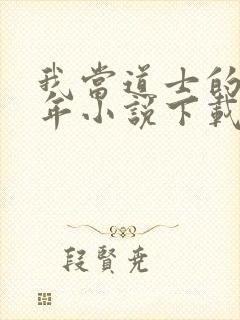 我當道士的
年小說下載
段賢堯